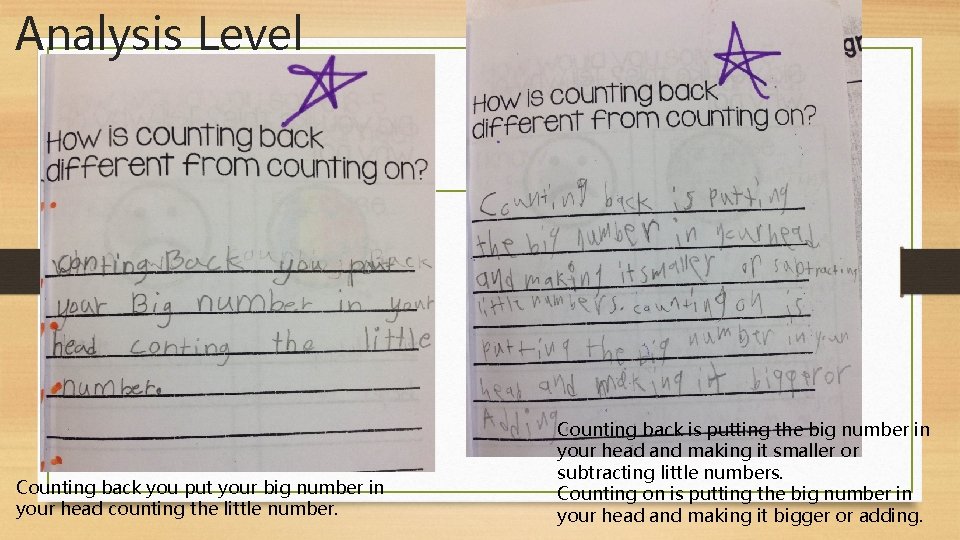 Analysis Level
How is counting back
different from counting on?
conting Back you put
your Big number in your
head conting the little
number.
Counting back you put your big number in
your head counting the little number.
gr
How is counting back
different from counting on?
Counting back is putting
the big number in your head
and making it smaller or subtracting
little numbers. counting on is
putting the big number in your
head and making it bigger or
Adding
Counting back is putting the big number in
your head and making it smaller or
subtracting little numbers.
Counting on is putting the big number in
your head and making it bigger or adding.